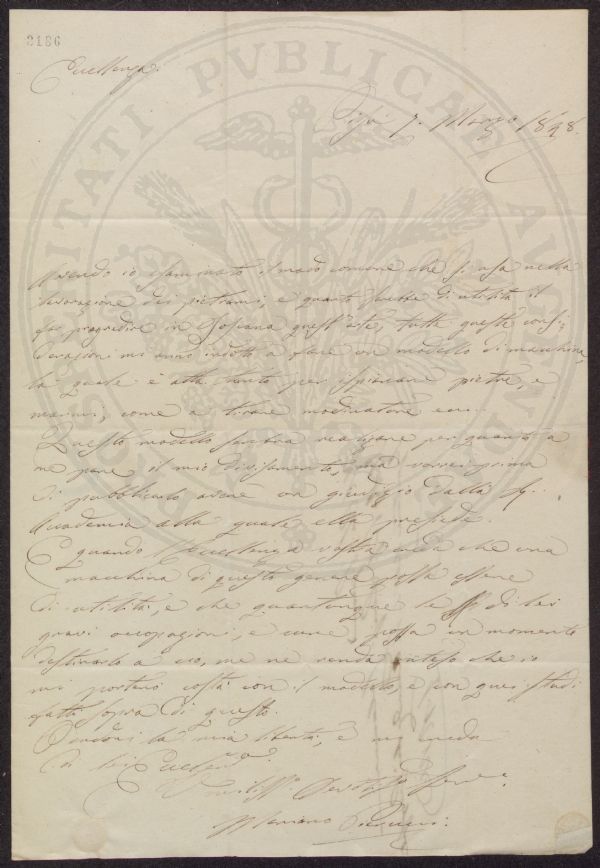 3186
PROSPERITATI PVBLICAE AVGENDAE
Eccellenza.
Pisa 7. Marzo 1848.
Avendo io esaminato il modo comune che si usa nella
lavorazione dei pietrami, e quanto sarebbe di utilità il
far progredire in Toscana quest'arte, tutte queste consi-
derazioni mi anno indotto a fare un modello di macchina,
la quale è atta tanto per ispianare pietre, e
marmi, come a tirare modinature
Questo modello sembra realizzare per quanto a
me pare, il mio divisamento, ma vorrei prima
di pubblicarlo avere un giudizio dalla
Accademia alla quale ella presiede.
E quando l'Eccellenza vostra creda che una
macchina di questo genere possa essere
di utilità, e che quantunque le di lei
gravi occupazioni, e cure, possa un momento
destinarlo a ciò, me ne renda inteso che io
mi porterò costà con il modello, e con quei studi
fatti sopra di questo.
Perdoni la mia libertà, e mi creda
Di lei Eccellenza